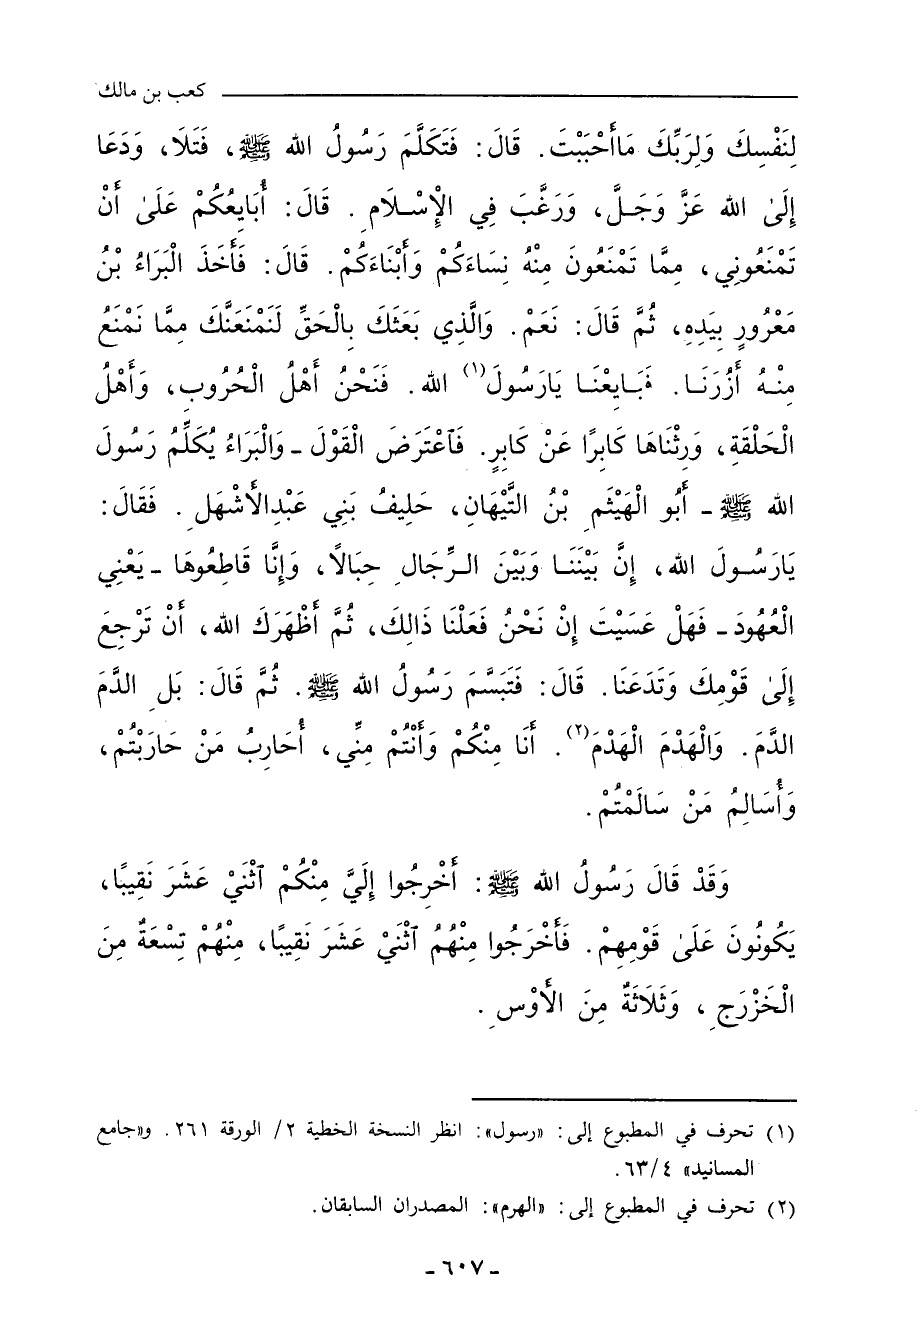 كعب بن مالك
لِنَفْسِكَ وَلِرَبِّكَ مَاأَحْبَبْتَ. قَالَ: فَتَكَلَّمَ رَسُولُ الله ﷺ، فَتَلَا، وَدَعَا
إِلَىٰ الله عَزَّ وَجَلَّ، وَرَغَّبَ فِي الْإِسْلَامِ. قَالَ: أُبَايِعُكُمْ عَلَىٰ أَنْ
تَمْنَعُونِي، مِمَّا تَمْنَعُونَ مِنْهُ نِسَاءَكُمْ وَأَبْنَاءَكُمْ. قَالَ: فَأَخَذَ الْبَرَاءُ بْنُ
مَعْرُورٍ بِيَدِهِ، ثُمَّ قَالَ: نَعَمْ. وَالَّذِي بَعَثَكَ بِالْحَقِّ لَنَمْنَعَنَّكَ مِمَّا نَمْنَعُ
مِنْهُ أُزُرَنَا. فَبَايِعْنَا يَارَسُولَ(١) الله. فَنَحْنُ أَهْلُ الْحُرُوبِ، وَأَهْلُ
الْحَلْقَةِ، وَرِثْنَاهَا كَابِرًا عَنْ كَابِرٍ. فَآعْتَرَضَ الْقَوْلَ - وَالْبَرَاءُ يُكَلِّمُ رَسُولَ
الله ﷺ - أَبُو الْهَيْثَمِ بْنُ التَّيِّهَانِ، حَلِيفُ بَنِي عَبْدِالأَشْهَلِ. فَقَالَ:
يَارَسُولَ الله، إِنَّ بَيْنَنَا وَبَيْنَ الرِّجَالِ حِبَالًا، وَإِنَّا قَاطِعُوهَا - يَعْنِي
الْعُهُودَ - فَهَلْ عَسَيْتَ إِنْ نَحْنُ فَعَلْنَا ذَالِكَ، ثُمَّ أَظْهَرَكَ الله، أَنْ تَرْجِعَ
إِلَىٰ قَوْمِكَ وَتَدَعَنَا. قَالَ: فَتَبَسَّمَ رَسُولُ الله ﷺ. ثُمَّ قَالَ: بَلِ الدَّمَ
الدَّمَ. وَالْهَدْمَ الْهَدْمَ(٢). أَنَا مِنْكُمْ وَأَنْتُمْ مِنِّي، أُحَارِبُ مَنْ حَارَبْتُمْ،
وَأُسَالِمُ مَنْ سَالَمْتُمْ.
وَقَدْ قَالَ رَسُولُ الله ﷺ: أَخْرِجُوا إِلَيَّ مِنْكُمْ آثْنَيْ عَشَرَ نَقِيبًا،
يَكُونُونَ عَلَىٰ قَوْمِهِمْ. فَأَخْرَجُوا مِنْهُمُ آثْنَيْ عَشَرَ نَقِيبًا، مِنْهُمْ تِسْعَةٌ مِنَ
الْخَزْرَجِ، وَثَلَاثَةٌ مِنَ الأَوْسِ.
(١) تحرف في المطبوع إلى: «رسول»: انظر النسخة الخطية ٢/ الورقة ٢٦١. و«جامع
المسانيد» ٤/٦٣.
(٢) تحرف في المطبوع إلى: «الهرم»: المصدران السابقان.
- ٦٠٧ -